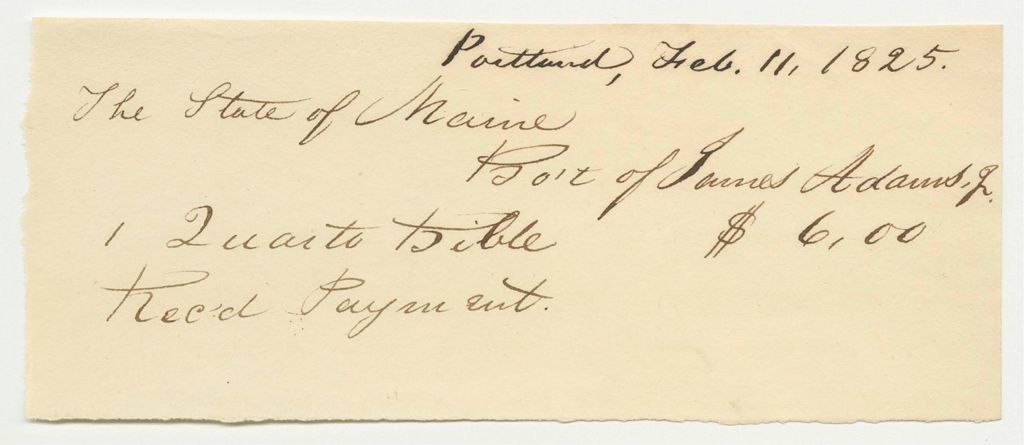 Portland, Feb. 11, 1825.
The State of Maine
Bo't of James Adams, Jr.
1 Quarto Bible $ 6,00
Rec'd Payment.